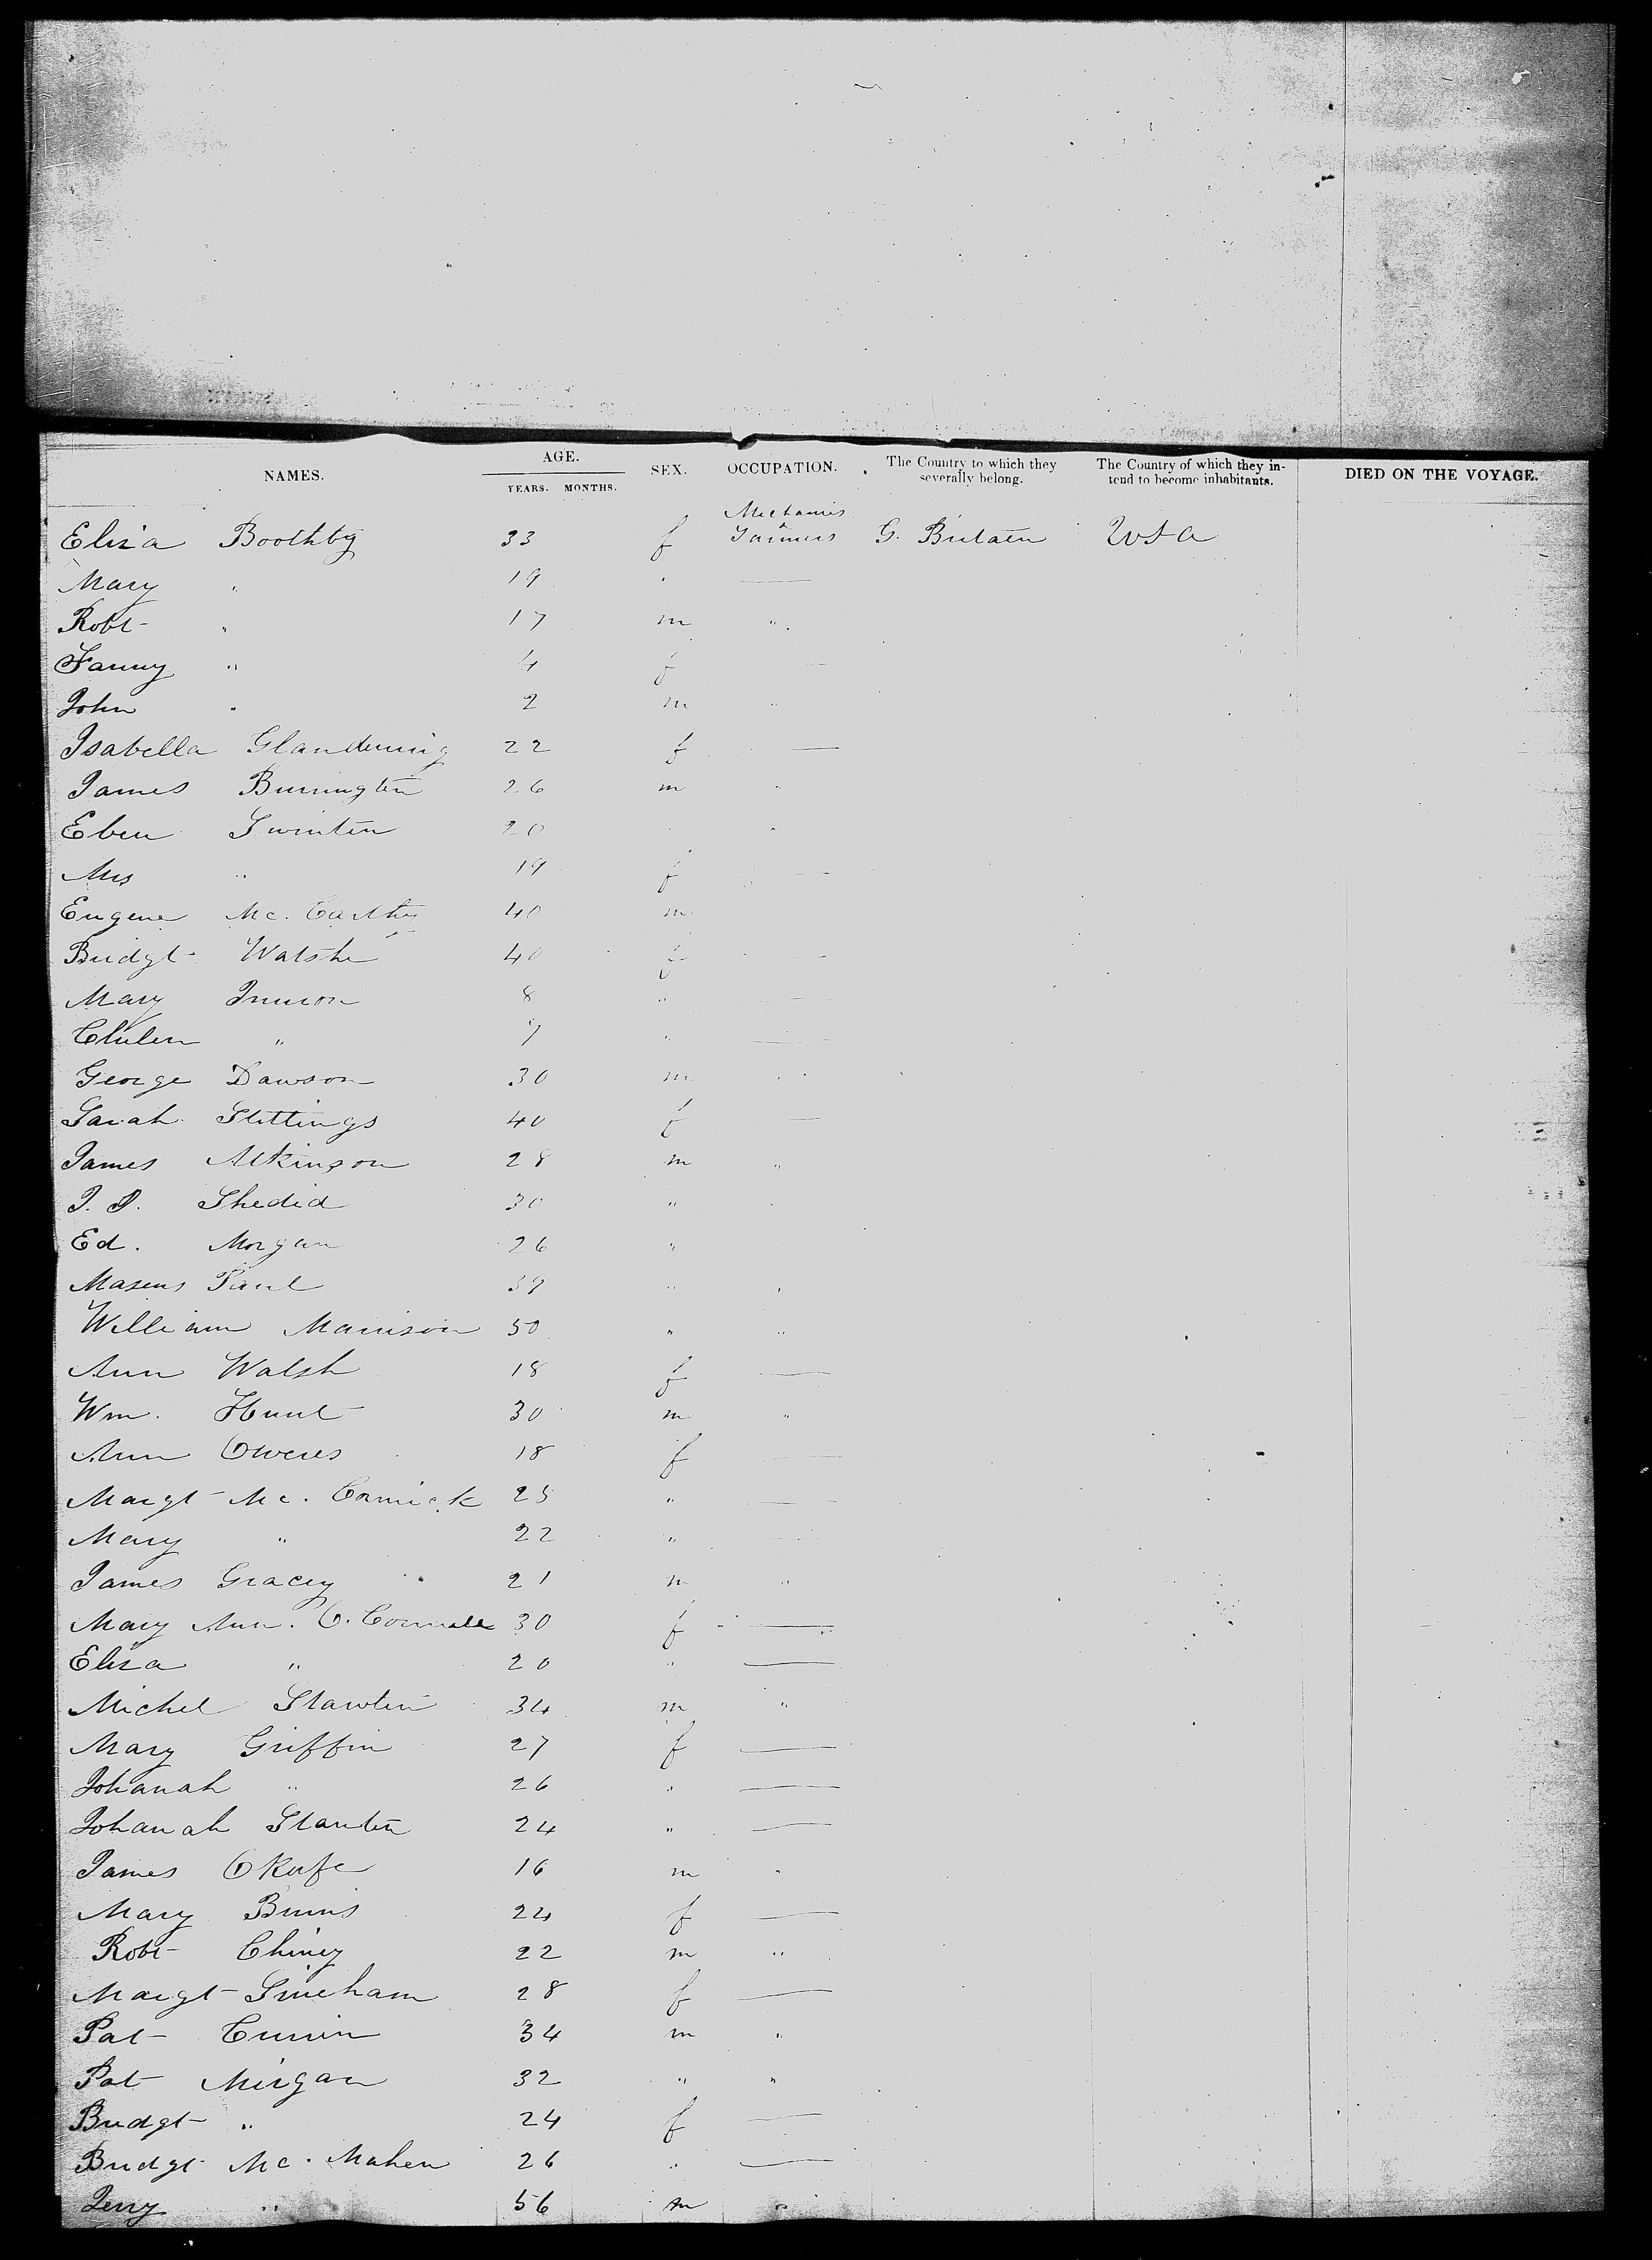 NAMES. AGE. SEX. OCCUPATION. The Country to which they severally belong. The Country of which they intend to become inhabitants. DIED ON THE VOYAGE.
YEARS. MONTHS.
Mechanics
Eliza Boothby 33 f Farmers G. Britain USA
Mary " 19 " —
Robt " 17 m "
Fanny " 4 f —
John " 2 m "
Isabella Glandening 22 f —
James Burrington 26 m "
Eben Swinton 20 " "
Mrs " 19 f —
Eugene Mc. Carthy 40 m
Bridgt Walshe 40 f —
Mary 8 " —
" 7 " —
George Dawson 30 m "
Sarah Stettings 40 f —
James Atkinson 28 m "
Shedid 30 " "
Ed. Morgan 26 "
Paul 39 " "
William Manison 50 " "
Ann Walsh 18 f —
Wm. Hunt 30 m "
Ann Owens 18 f —
Margt Mc. Cormick 25 " —
Mary " 22 " —
James Gracey 21 m "
Mary Ann. O. Connell 30 f —
Eliza " 20 " —
Michel Stanton 34 m "
Mary Griffin 27 f —
Johanah " 26 " —
Johanah Stanton 24 " —
James OKeefe 16 m "
Mary Burns 24 f —
Robt Chiney 22 m "
Margt 28 f —
Pat 34 m "
Pat Mirgan 32 " "
Bridgt " 24 f —
Bridgt Mc. Mahen 26 " —
Jerry " 56 m "